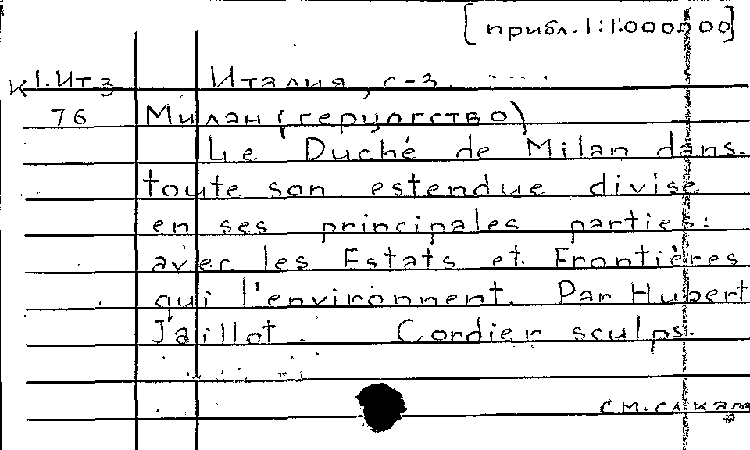 [прибл. 1:1.000000]
К 1. Ит 3 Италия, с-з.
76 Милан (герцогство)
Le Duché de Milan dans
toute son estendue divisé
en ses principales parties:
avec les Estats et Frontières
qui l'environnent. Par Hubert
Jaillot. Cordier sculps.
см.след.